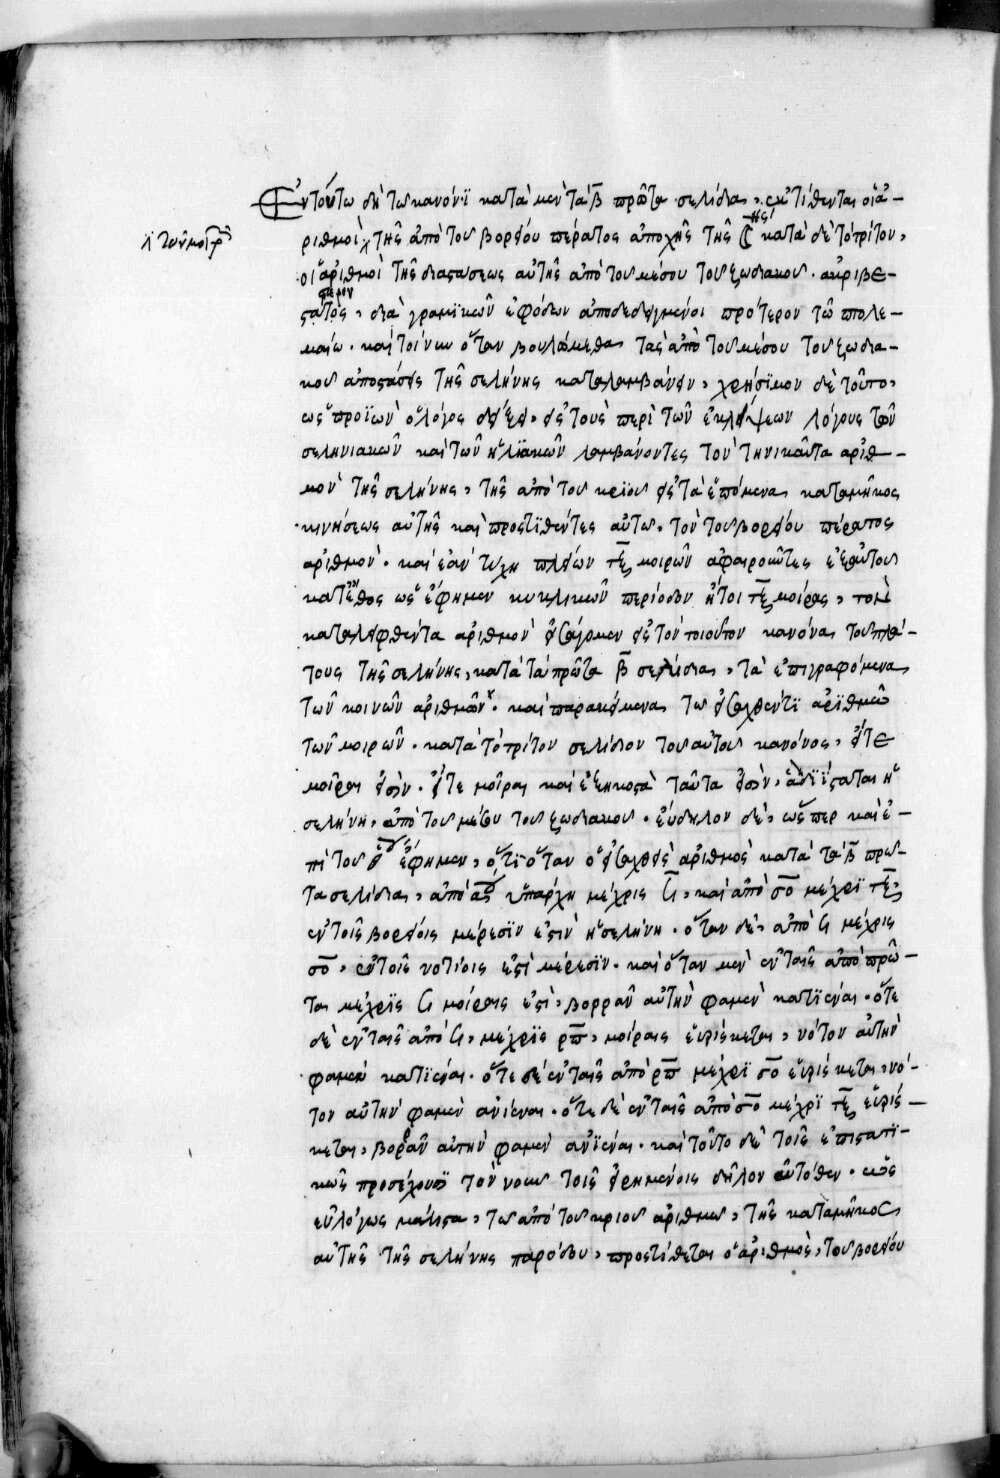 Ἐν τούτω δὴ τω κανόνϊ κατὰ μὲν τὰ β̄ πρῶτα σελίδια, ἐκτίθενται οἱ ἀ-
ριθμοὶ τῆς ἀπὸ του βορείου πέρατος ἀποχῆς τῆς ☾ κατὰ δὲ τὸ τρίτον,
οἱ ἀριθμοὶ τῆς διαστάσεως αὐτῆς ἀπὸ του μέσου του ζωδιακου. ἀκριβε-
στατος, διὰ γραμϊκῶν ἐφόδων ἀποδεδειγμένοι πρότερον τῶ πτολε-
μαίω. καὶ τοίνυν ὅταν βουλώμεθα τὰς ἀπὸ του μέσου του ζωδια-
κου ἀποστάσεις τῆς σελήνης καταλαμβάνειν, χρήσϊμον δὲ τοῦτο,
ως προϊὼν ὁ λόγος δείξει, εἰς τοὺς περὶ τῶν ἐκλείψεων λόγους τῶν
σεληνιακῶν καὶ τῶν ἡλϊακῶν λαμβάνοντες τὸν τηνικαῦτα ἀριθ-
μὸν τῆς σελήνης, τῆς ἀπὸ του κριου εἰς τὰ ἑπόμενα κατα μῆκος
κινήσεως αὐτῆς καὶ προστϊθέντες αὐτω, τὸν του βορείου πέρατος
ἀριθμόν. καὶ ἐὰν τύχη πλείων τξ̄ μοιρῶν ἀφαιροῦντες
κατ' ἔθος ως ἔφημεν κυκλικῶν περίοδον ἤτοι τξ̄ μοίρας, τὸν
καταλειφθέντα ἀριθμὸν εἰσάγομεν εἰς τὸν τοιοῦτον κανόνα του πλά-
τους τῆς σελήνης, κατὰ τὰ πρῶτα β̄ σελίδια, τὰ ἐπιγραφόμενα
τῶν κοινῶν ἀριθμῶν. καὶ παρακείμενα τω εἰσαχθέντϊ ἀριθμῶ
τῶν μοιρῶν. κατὰ τὸ τρίτον σελίδιον του αὐτου κανόνος, εἴτε
μοῖραι εἰσὶν. εἴτε μοῖραι καὶ ἑξηκοστὰ ταῦτα εἰσὶν, διΐσταται ἡ
σελήνη, ἀπὸ του μέσου του ζωδιακου. εὔδηλον δὲ, ὥσπερ καὶ ἐ-
πὶ του ἔφημεν, ὅτϊ ὅταν ὁ εἰσαχθεὶς ἀριθμὸς κατὰ τὰ β̄ πρω-
τα σελίδια, ἀπὸ ὑπάρχη μέχρις ϟ̄, καὶ ἀπὸ σο̄ μέχρϊ τξ̄,
ἐν τοῖς βορείοις μέρεσϊν ἐστὶν ἡ σελήνη. ὅταν δὲ, ἀπὸ ϟ μέχρις
σο̄, ἐν τοῖς νοτίοις ἐστὶ μέρεσϊν. καὶ ὅταν μὲν ἐν ταῖς ἀπὸ πρώ-
του μέχρϊς ϟ μοίραις ἐστὶ, βορρᾶν αὐτὴν φαμὲν κατϊέναι. ὅτε
δὲ ἐν ταῖς ἀπὸ ϟ, μέχρϊς ρπ̄, μοίραις εὑρίσκεται, νότον αὐτὴν
φαμὲν κατϊέναι. ὅτε δὲ ἐν ταῖς ἀπὸ ρπ̄ μέχρϊ σο̄ εὑρίσκεται, νό-
τον αὐτὴν φαμὲν ἀνιέναι. ὅτε δὲ ἐν ταῖς ἀπὸ σο̄ μέχρϊ τξ̄ εὑρίσ-
κεται, βορρᾶν αὐτὴν φαμὲν ἀνϊέναι. καὶ τοῦτο δὲ τοῖς ἐπιστατϊ-
κῶς προσέχουσϊ τὸν νουν τοῖς εἰρημένοις δῆλον αὐτόθεν. ως
εὐλόγως μάλιστα, τω ἀπὸ του κριου ἀριθμω, τῆς κατὰ μῆκος
αὐτῆς τῆς σελήνης παρόδου, προστίθεται ὁ ἀριθμὸς, του βορείου